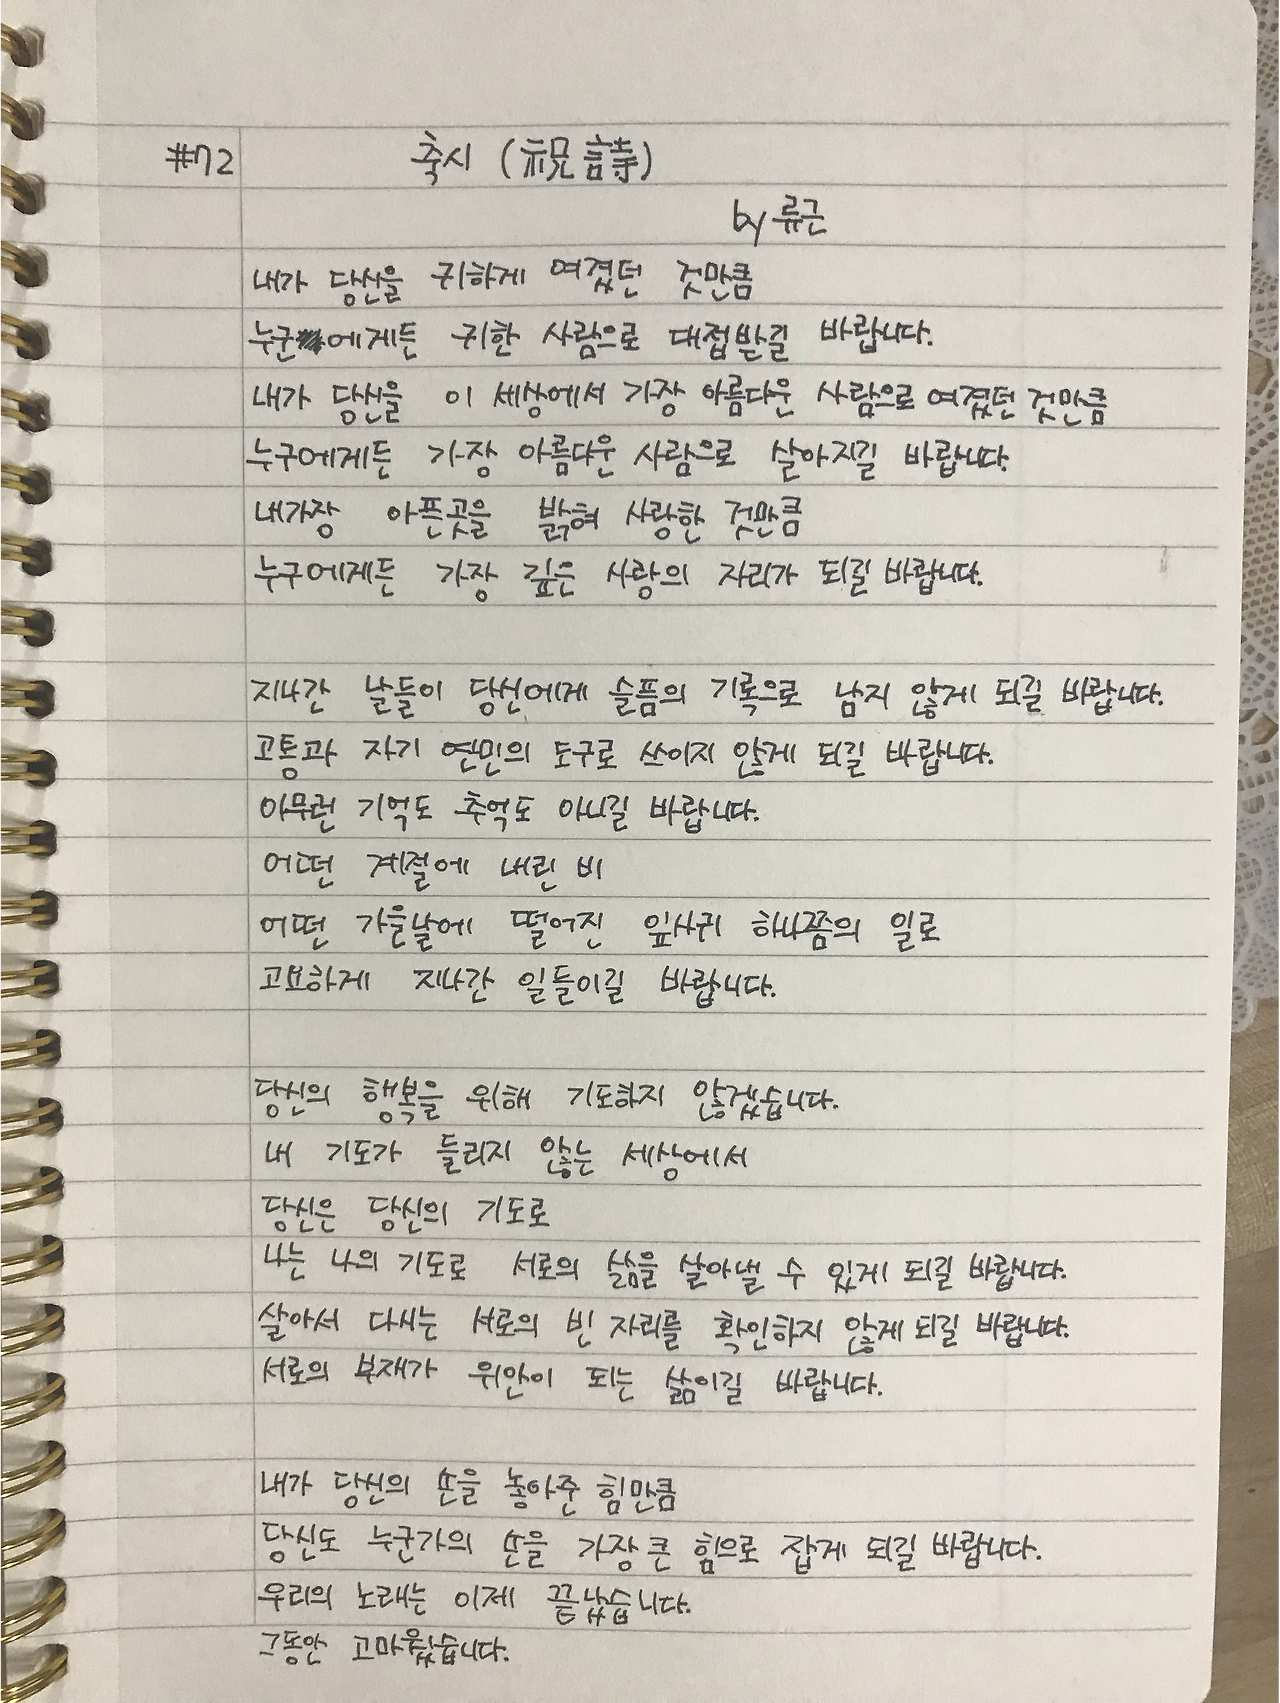 #72 축시 (祝詩)
by 류근
내가 당신을 귀하게 여겼던 것만큼
누군에게든 귀한 사람으로 대접받길 바랍니다.
내가 당신을 이 세상에서 가장 아름다운 사람으로 여겼던 것만큼
누구에게든 가장 아름다운 사람으로 살아지길 바랍니다.
내가장 아픈곳을 밝혀 사랑한 것만큼
누구에게든 가장 깊은 사랑의 자리가 되길 바랍니다.
지나간 날들이 당신에게 슬픔의 기록으로 남지 않게 되길 바랍니다.
고통과 자기 연민의 도구로 쓰이지 않게 되길 바랍니다.
아무런 기억도 추억도 아니길 바랍니다.
어떤 계절에 내린 비
어떤 가을날에 떨어진 잎사귀 하나쯤의 일로
고요하게 지나간 일들이길 바랍니다.
당신의 행복을 위해 기도하지 않겠습니다.
내 기도가 들리지 않는 세상에서
당신은 당신의 기도로
나는 나의 기도로 서로의 삶을 살아낼 수 있게 되길 바랍니다.
살아서 다시는 서로의 빈 자리를 확인하지 않게 되길 바랍니다.
서로의 부재가 위안이 되는 삶이길 바랍니다.
내가 당신의 손을 놓아준 힘만큼
당신도 누군가의 손을 가장 큰 힘으로 잡게 되길 바랍니다.
우리의 노래는 이제 끝났습니다.
그동안 고마웠습니다.